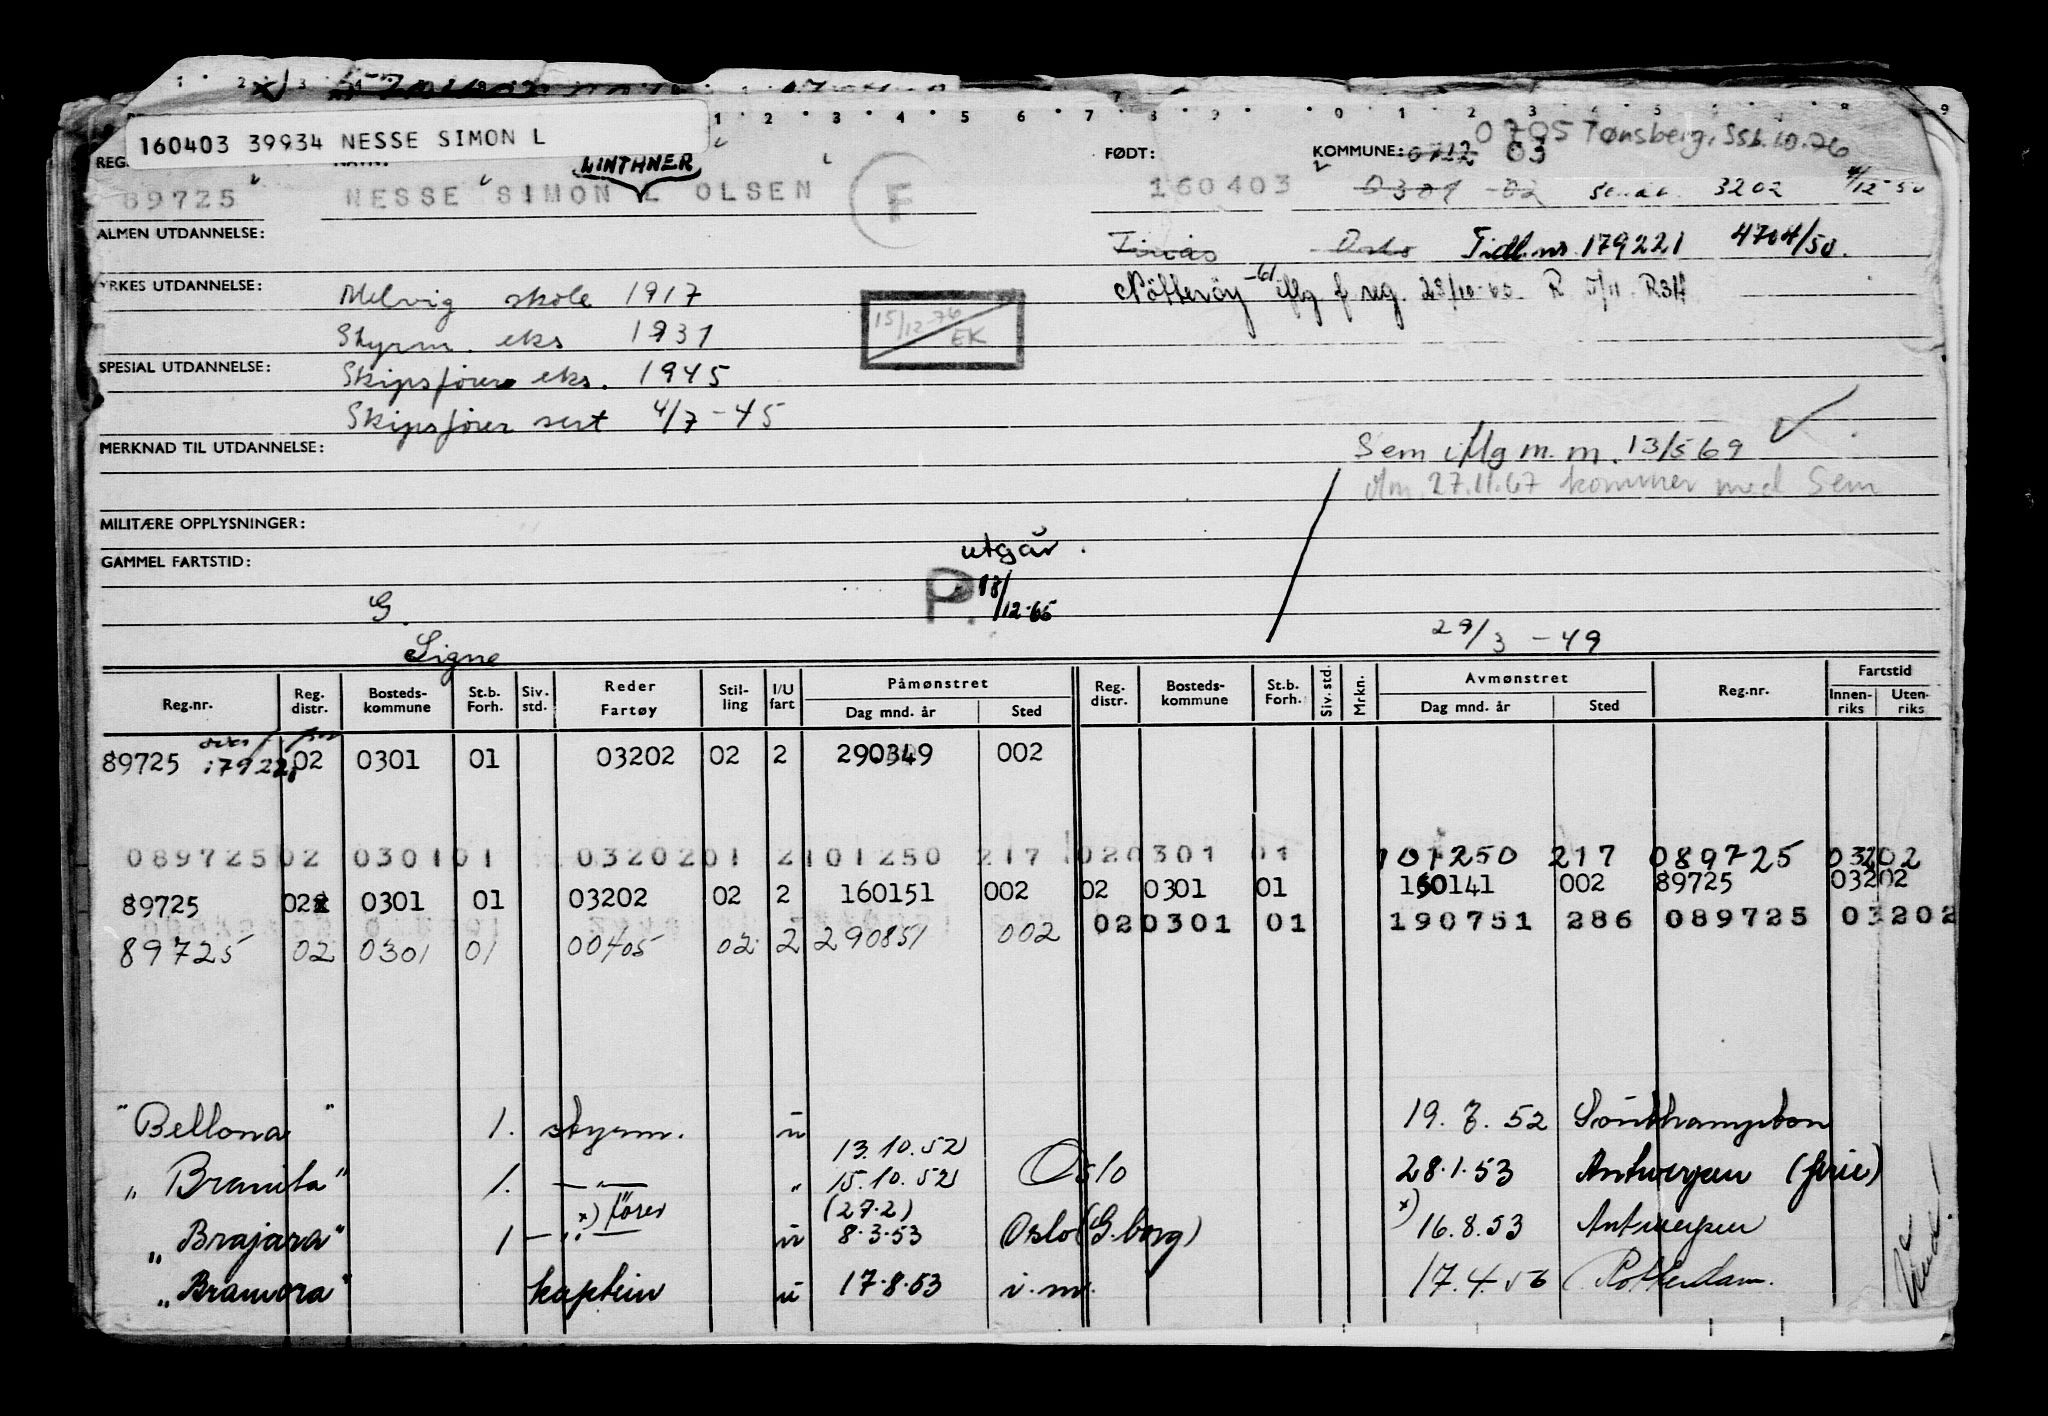 160403 39934 NESSE SIMON L
0705 Tønsberg, Ssb. 10.76
FØDT: KOMMUNE: 0712 03
LINTHNER
89725 NESSE SIMON L OLSEN F 160403 0301 -02 3202 4/12-50
ALMEN UTDANNELSE: Oslo Tidl. nr. 179221 4704/50.
YRKES UTDANNELSE: Melvig skole 1917 Nötteröy iflg f reg. 28/10-60 R 5/11 R3H
Styrm. eks 1931 15/12-76 EK
SPESIAL UTDANNELSE: Skipsförer eks. 1945
Skipsförer sert 4/7-45
MERKNAD TIL UTDANNELSE: Sem iflg m.m. 13/5 69
27.11.67 kommer med Sem
MILITÆRE OPPLYSNINGER:
utgår.
GAMMEL FARTSTID:
P. 18/12-65
G.
29/3 - 49
Signe
Reg.nr. Reg. distr. Bosteds-kommune St.b. Forh. Siv. std. Reder Fartøy Stil-ling I/U fart Påmønstret Dag mnd. år Sted Reg. distr. Bosteds-kommune St.b. Forh. Siv. std. Mrkn. Avmønstret Dag mnd. år Sted Reg.nr. Fartstid Innen-riks Uten-riks
89725 179221 02 0301 01 03202 02 2 290349 002
089725 02 0301 01 03202 01 2 101250 217 02 0301 01 101250 217 089725 03202
89725 02 0301 01 03202 02 2 160151 002 02 0301 01 160141 002 89725 03202
02 0301 01 190751 286 089725 03202
89725 02 0301 01 00405 02 2 290851 002
"Bellona" 1. styrm. u 19.7.52 Southhampton
13.10.52
"Branita" 1. —"— " 15.10.52 Oslo 28.1.53 Antwerpen (ferie)
x) förer (27.2) x)
"Brajara" 1 —"— u 8.3.53 Oslo (G.borg) 16.8.53 Antwerpen
"Bramora" kaptein u 17.8.53 i.m. 17.4.56 Rotterdam.